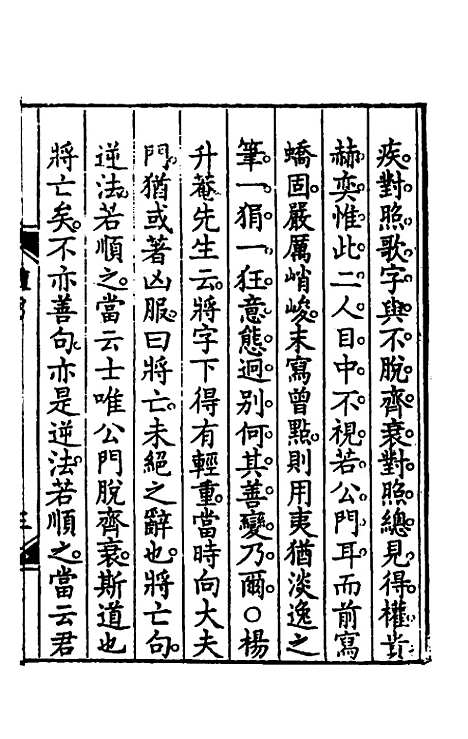 疾。對照。歌字與不脫齊衰對照。總見得權貴
赫奕。惟此二人目中不視若公門耳。而前寫
蟜固。嚴厲峭峻。末寫曾點。則用夷猶淡逸之
筆。一狷一狂。意態迥别。何其善變乃爾。○楊
升菴先生云。將字下得有輕重。當時向大夫
門。猶或著凶服。曰將亡。未絕之辭也。將亡句。
逆法。若順之。當云士唯公門脫齊衰。斯道也
將亡矣。不亦善句。亦是逆法。若順之。當云君